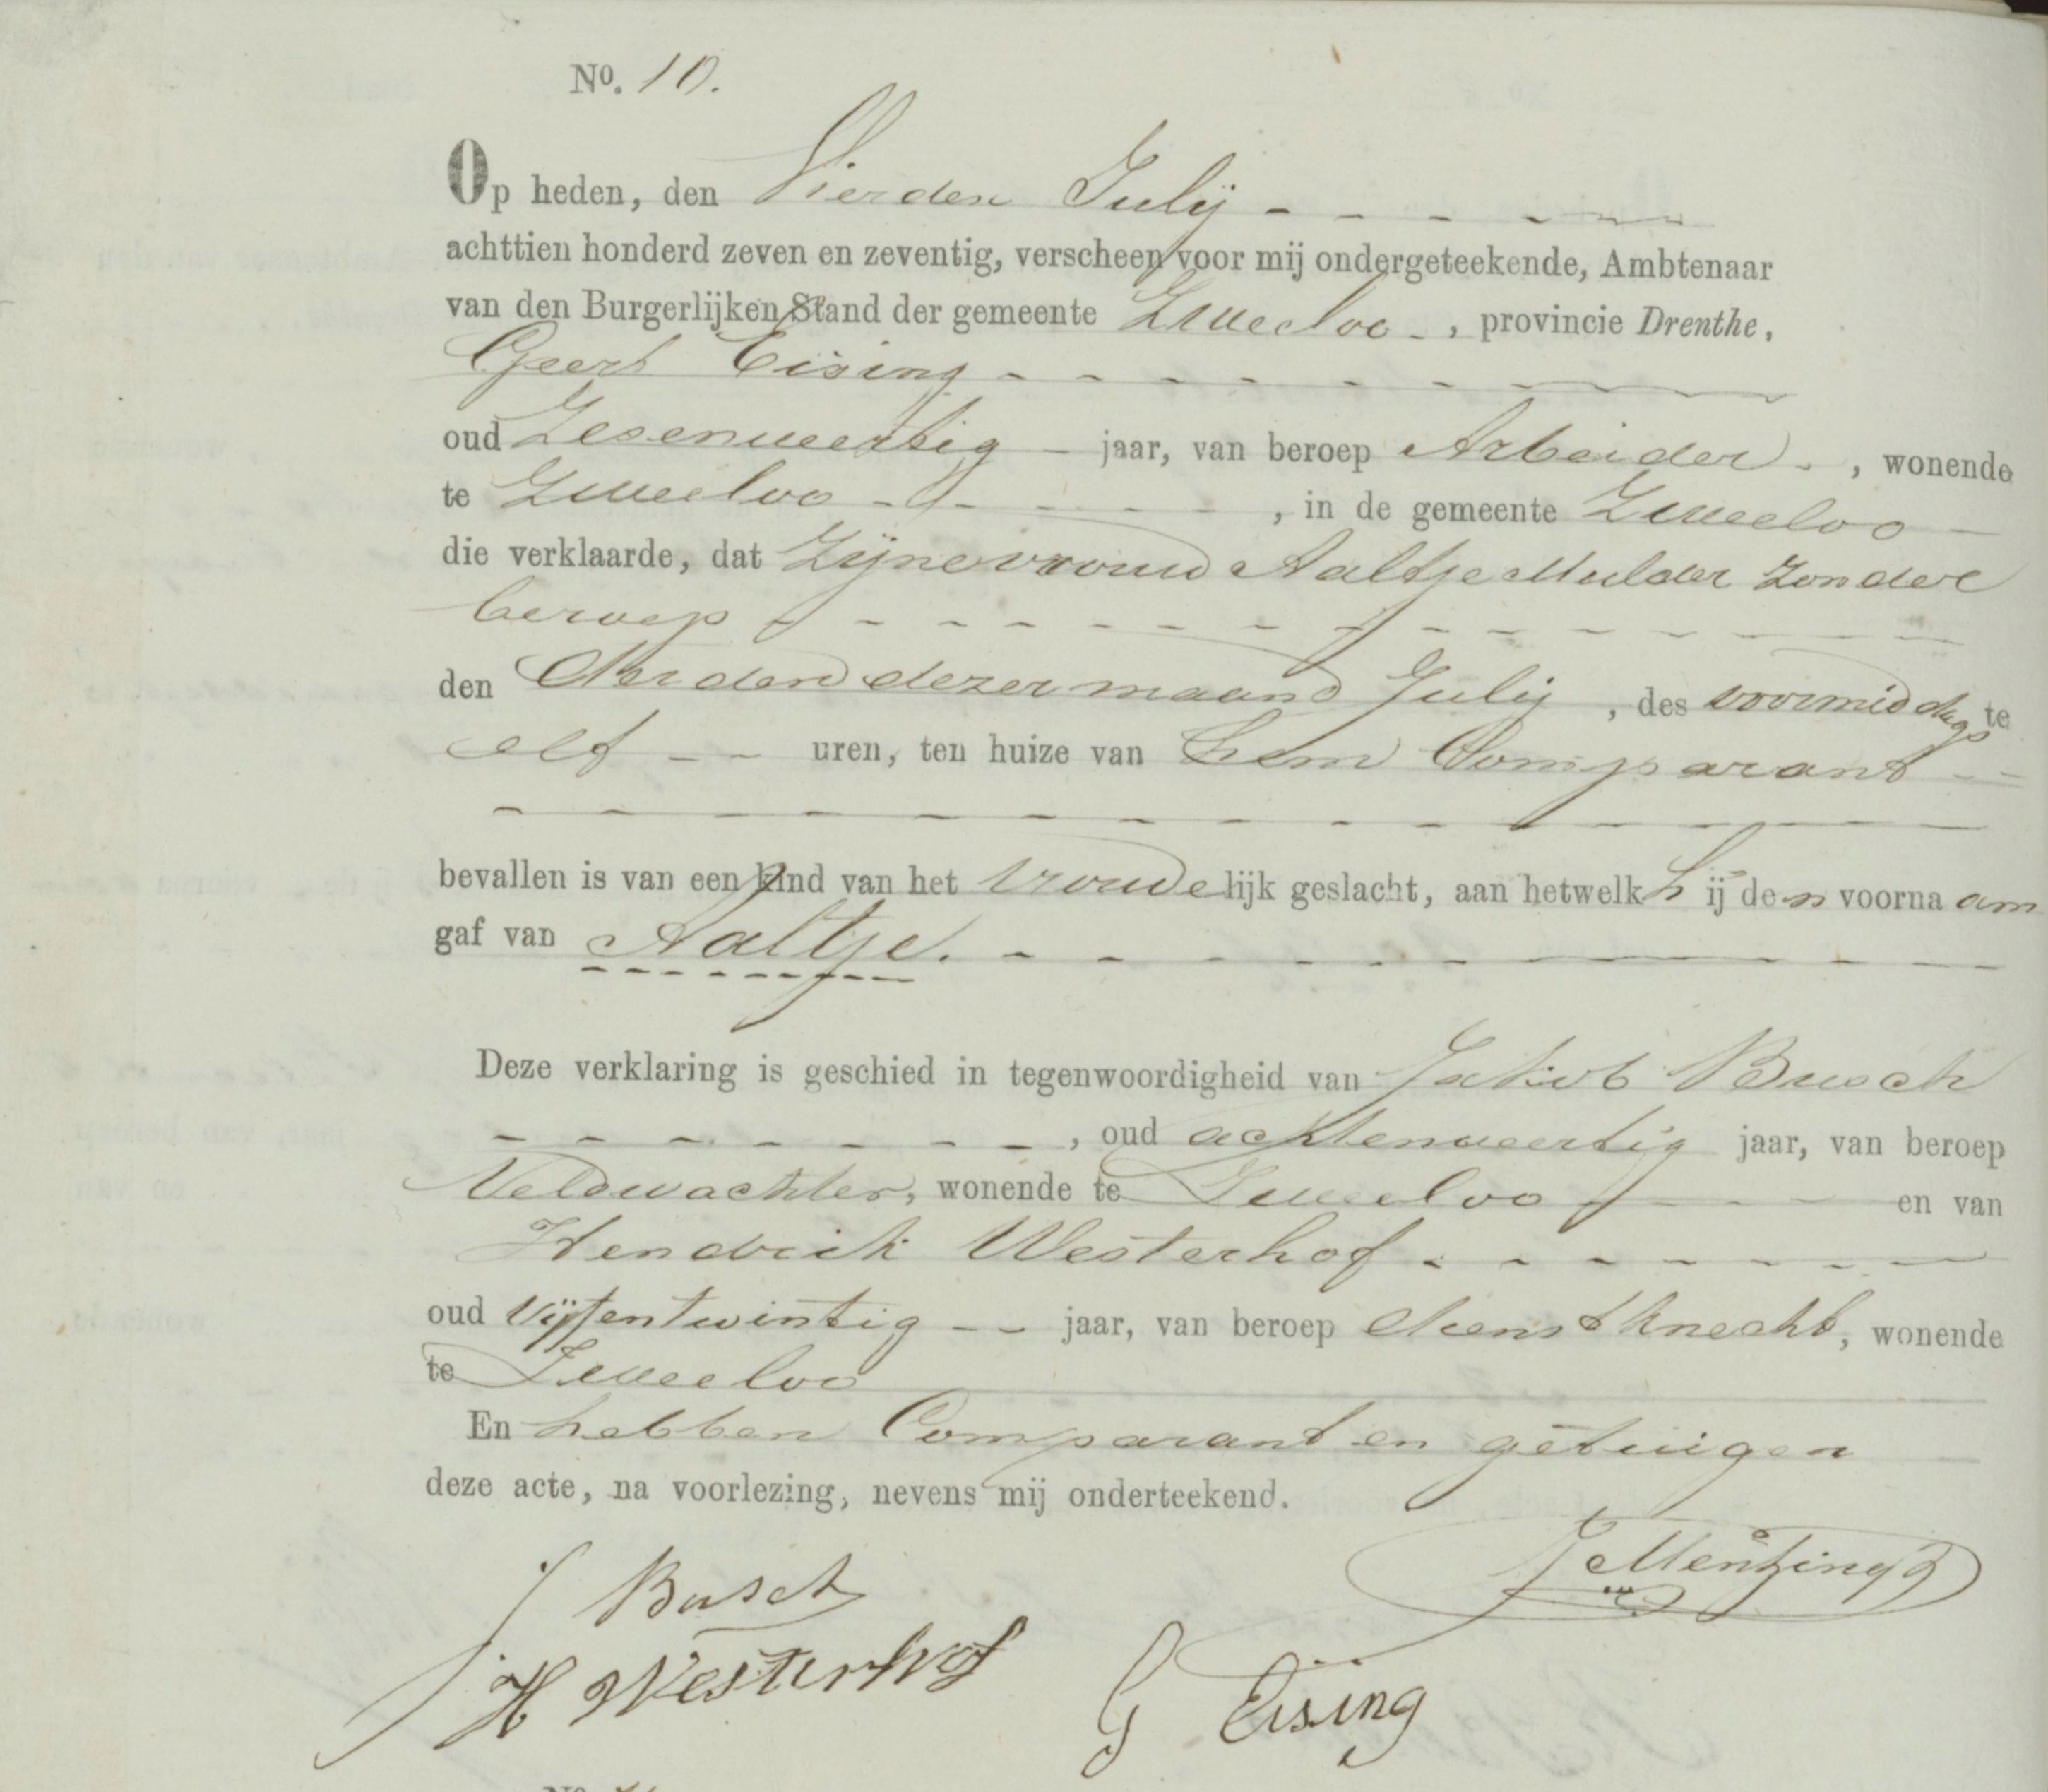 No. 10.
Op heden, den Vierden Julij
achttien honderd zeven en zeventig, verscheen voor mij ondergeteekende, Ambtenaar
van den Burgerlijken Stand der gemeente Zweeloo, provincie Drenthe,
Geert Eising
oud Zesenveertig jaar, van beroep Arbeider, wonende
te Zweeloo, in de gemeente Zweeloo
die verklaarde, dat Zijne vrouw Aaltje Mulder zonder
beroep
den Derden dezer maand Julij, des voormiddags te
elf uren, ten huize van hem Comparant
bevallen is van een kind van het vrouwelijk geslacht, aan hetwelk hij den voornaam
gaf van Aaltje.
Deze verklaring is geschied in tegenwoordigheid van Jakob Busch
, oud achtenveertig jaar, van beroep
Veldwachter, wonende te Zweeloo en van
Hendrik Westerhof
oud vijfentwintig jaar, van beroep dienstknecht, wonende
te Zweeloo
En hebben Comparant en getuigen
deze acte, na voorlezing, nevens mij onderteekend.
J Busch
H Westerhof
G Eising